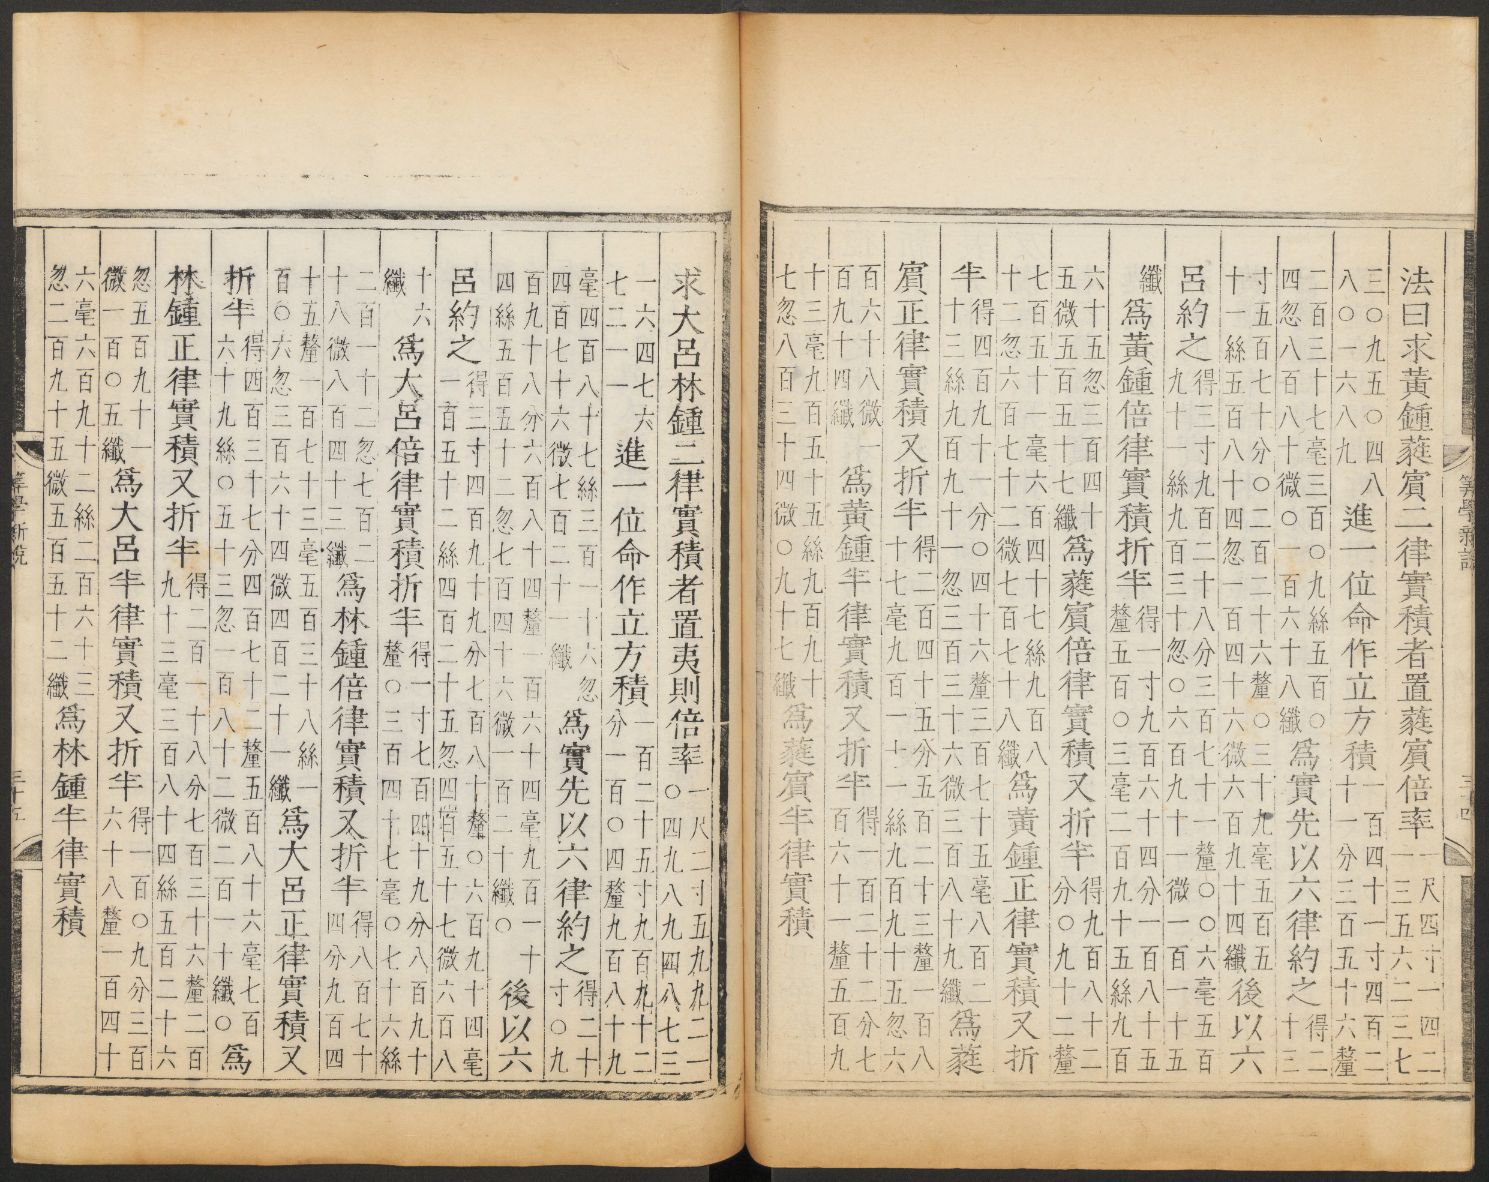 法曰求黃鍾蕤賓二律實積者置蕤賓倍率一尺四寸一四二一三五六二三七
三〇九五〇四八八〇一六八九進一位命作立方積一百四十一寸四百二十一分三百五十六釐
二百三十七毫三百〇九絲五百〇四忽八百八十微〇一百六十八纖爲實先以六律約之得二十三
寸五百七十分〇二百二十六釐〇三十九毫五百五十一絲五百八十四忽一百四十六微六百九十四纖後以六
呂約之得三寸九百二十八分三百七十一釐〇〇六毫五百九十一絲九百三十忽〇六百九十一微一百一十五
纖爲黃鍾倍律實積折半得一寸九百六十四分一百八十五釐五百〇三毫二百九十五絲九百
六十五忽三百四十五微五百五十七纖爲蕤賓倍律實積又折半得九百八十二分〇九十二釐
七百五十一毫六百四十七絲九百八十二忽六百七十二微七百七十八纖爲黃鍾正律實積又折
半得四百九十一分〇四十六釐三百七十五毫八百二十三絲九百九十一忽三百三十六微三百八十九纖爲蕤
賓正律實積又折半得二百四十五分五百二十三釐一百八十七毫九百一十一絲九百九十五忽六
百六十八微一百九十四纖爲黃鍾半律實積又折半得一百二十二分七百六十一釐五百九
十三毫九百五十五絲九百九十七忽八百三十四微〇九十七纖爲蕤賓半律實積
算學新說 三十四
求大呂林鍾二律實積者置夷則倍率一尺二寸五九九二一〇四九八九四八七三
一六四七六七二一一進一位命作立方積一百二十五寸九百九十二分一百〇四釐九百八十九
毫四百八十七絲三百一十六忽四百七十六微七百二十一纖爲實先以六律約之得二十寸〇九
百九十八分六百八十四釐一百六十四毫九百一十四絲五百五十二忽七百四十六微一百二十纖〇後以六
呂約之得三寸四百九十九分七百八十釐〇六百九十四毫一百五十二絲四百二十五忽四百五十七微六百八
十六纖爲大呂倍律實積折半得一寸七百四十九分八百九十釐〇三百四十七毫〇七十六絲
二百一十二忽七百二十八微八百四十三纖爲林鍾倍律實積又折半得八百七十四分九百四
十五釐一百七十三毫五百三十八絲一百〇六忽三百六十四微四百二十一纖爲大呂正律實積又
折半得四百三十七分四百七十二釐五百八十六毫七百六十九絲〇五十三忽一百八十二微二百一十纖〇爲
林鍾正律實積又折半得二百一十八分七百三十六釐二百九十三毫三百八十四絲五百二十六
忽五百九十一微一百〇五纖爲大呂半律實積又折半得一百〇九分三百六十八釐一百四十
六毫六百九十二絲二百六十三忽二百九十五微五百五十二纖爲林鍾半律實積
算學新說 三十五